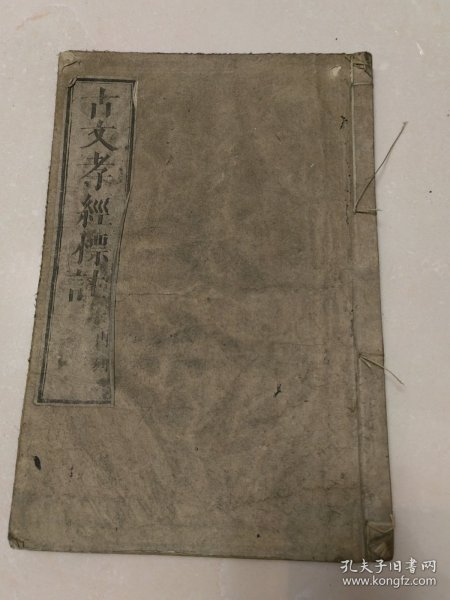 古文孝經標註
孔夫子旧书网
www.kongfz.com